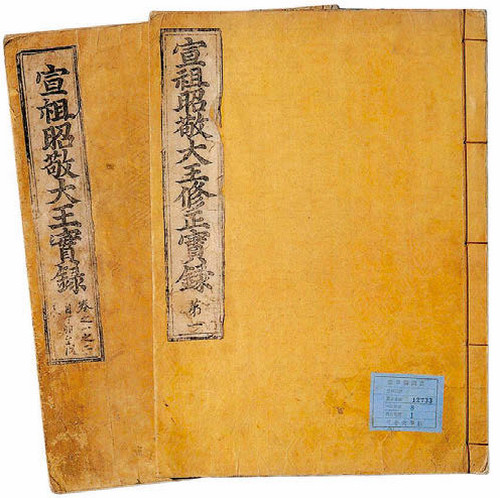 宣祖昭敬大王實錄
卷之一之二
宣祖昭敬大王修正實錄
第一
12733
8
1